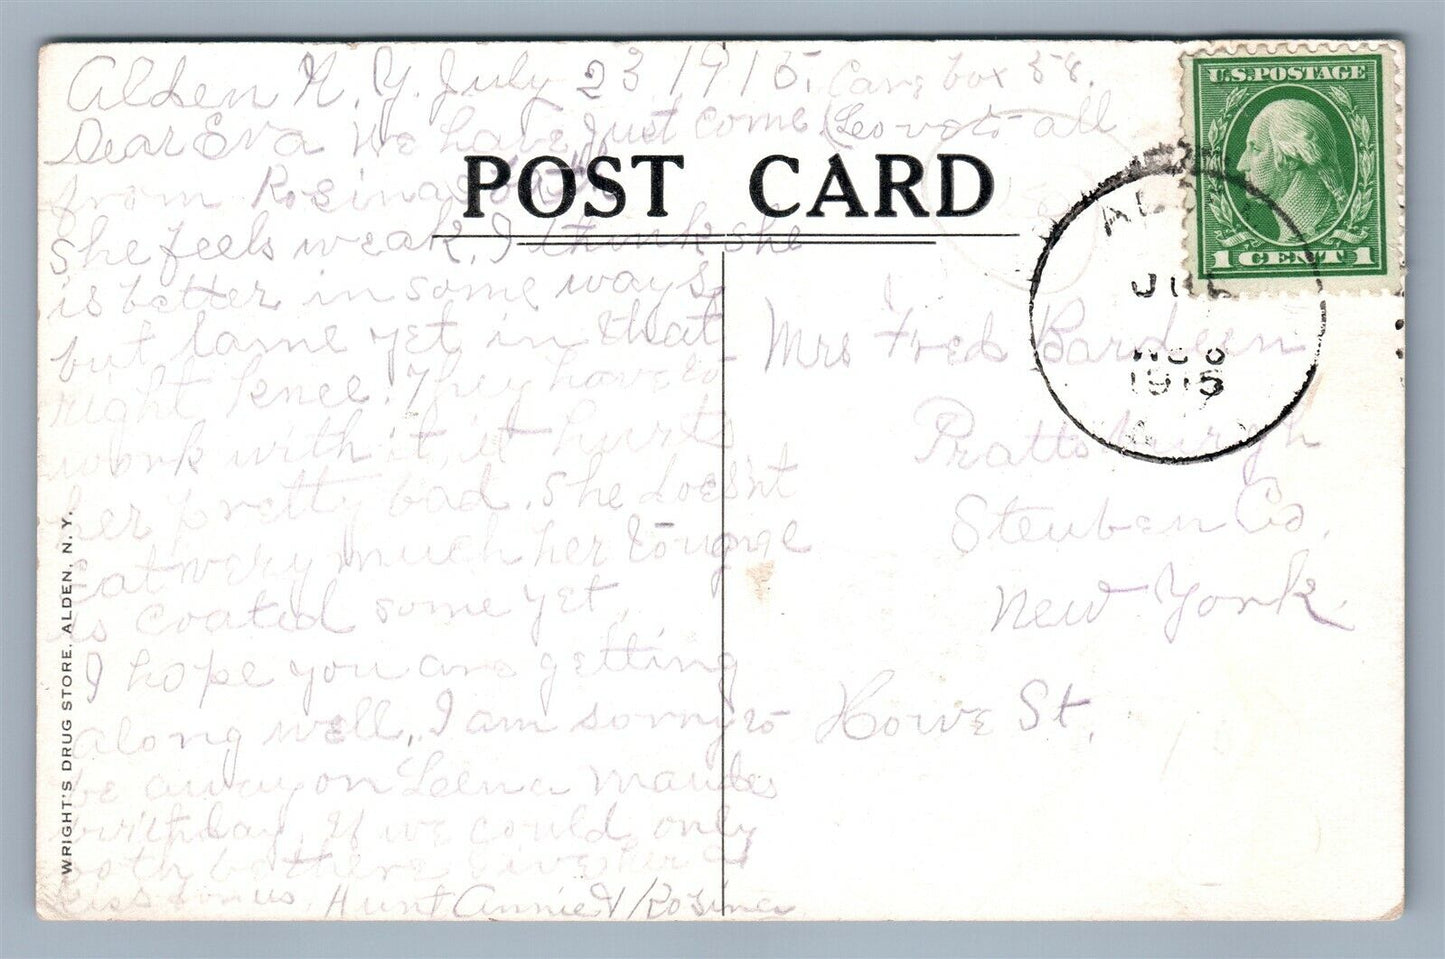 Alden N.Y. July 23 1915. Care box 58.
Dear Eva We have just come (Love to all
from Rosina
She feels weak, I think she
is better in some ways,
but lame yet in that
right knee. They have to
work with it it hurts
her pretty bad. She doesnt
eat very much her tounge
is coated some yet,
I hope you are getting
along well, I am sorry to
be away on Leena Maudes
birthday, If we could only
both be there Give her a
kiss for us. Aunt Annie & Rosina
POST CARD
U.S. POSTAGE
1 CENT 1
JUL
1915
Mrs Fred Bardeen
Prattsburgh
Steuben Co.
New York.
Howe St.
WRIGHT'S DRUG STORE, ALDEN, N. Y.